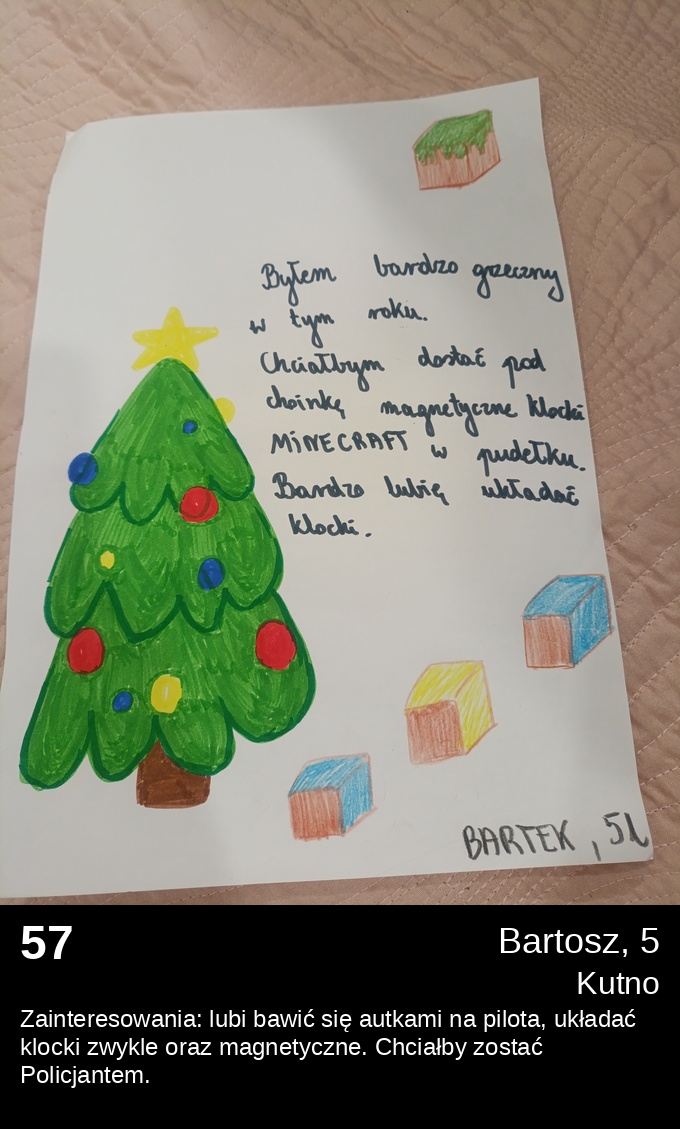 Byłem bardzo grzeczny
w tym roku.
Chciałbym dostać pod
choinkę magnetyczne klocki
MiNECRAFT w pudełku.
Bardzo lubię układać
klocki.
BARTEK, 5L
57
Bartosz, 5
Kutno
Zainteresowania: lubi bawić się autkami na pilota, układać
klocki zwykle oraz magnetyczne. Chciałby zostać
Policjantem.